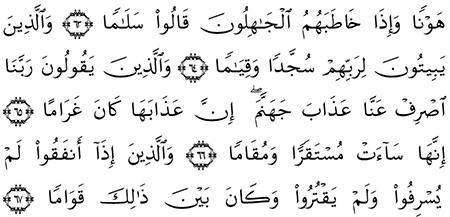 هَوْنًا وَإِذَا خَاطَبَهُمُ الْجَـٰهِلُونَ قَالُوا۟ سَلَـٰمًا ﴿٦٣﴾ وَالَّذِينَ
يَبِيتُونَ لِرَبِّهِمْ سُجَّدًا وَقِيَـٰمًا ﴿٦٤﴾ وَالَّذِينَ يَقُولُونَ رَبَّنَا
ٱصْرِفْ عَنَّا عَذَابَ جَهَنَّمَ ۖ إِنَّ عَذَابَهَا كَانَ غَرَامًا ﴿٦٥﴾
إِنَّهَا سَآءَتْ مُسْتَقَرًّا وَمُقَامًا ﴿٦٦﴾ وَالَّذِينَ إِذَآ أَنفَقُوا۟ لَمْ
يُسْرِفُوا۟ وَلَمْ يَقْتُرُوا۟ وَكَانَ بَيْنَ ذَٰلِكَ قَوَامًا ﴿٦٧﴾